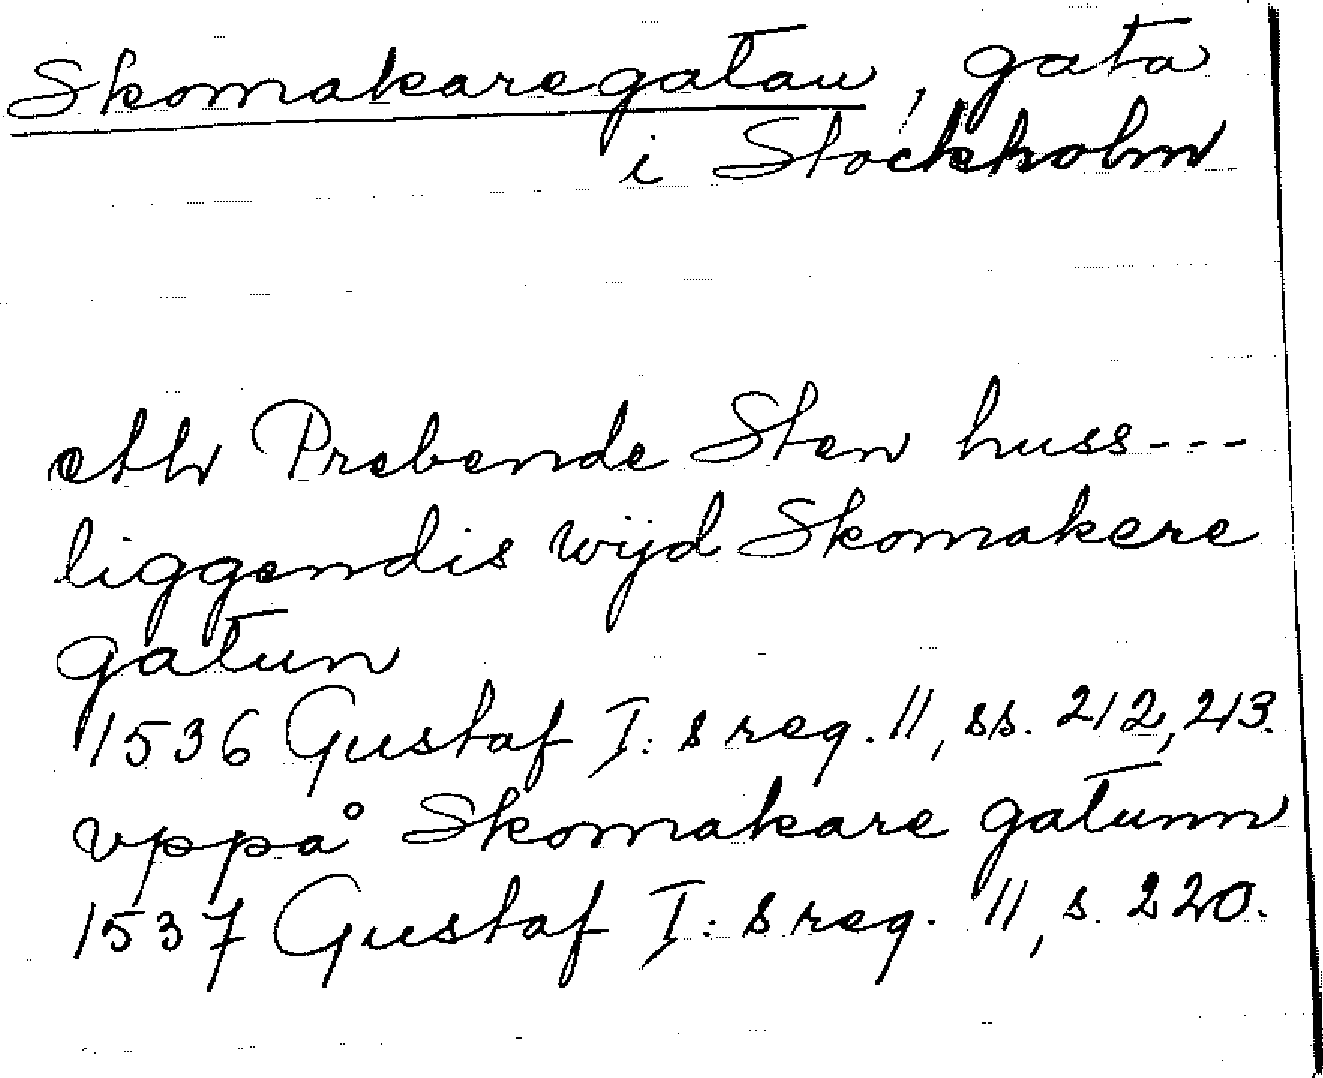 Skomakaregatan, gata
i Stockholm
etth Prebende Sten huss---
liggendis wijd Skomakere
gatun
1536 Gustaf I:s reg. 11, ss. 212, 213.
vppå Skomakare gatunn
1537 Gustaf I:s reg. 11, s. 220.